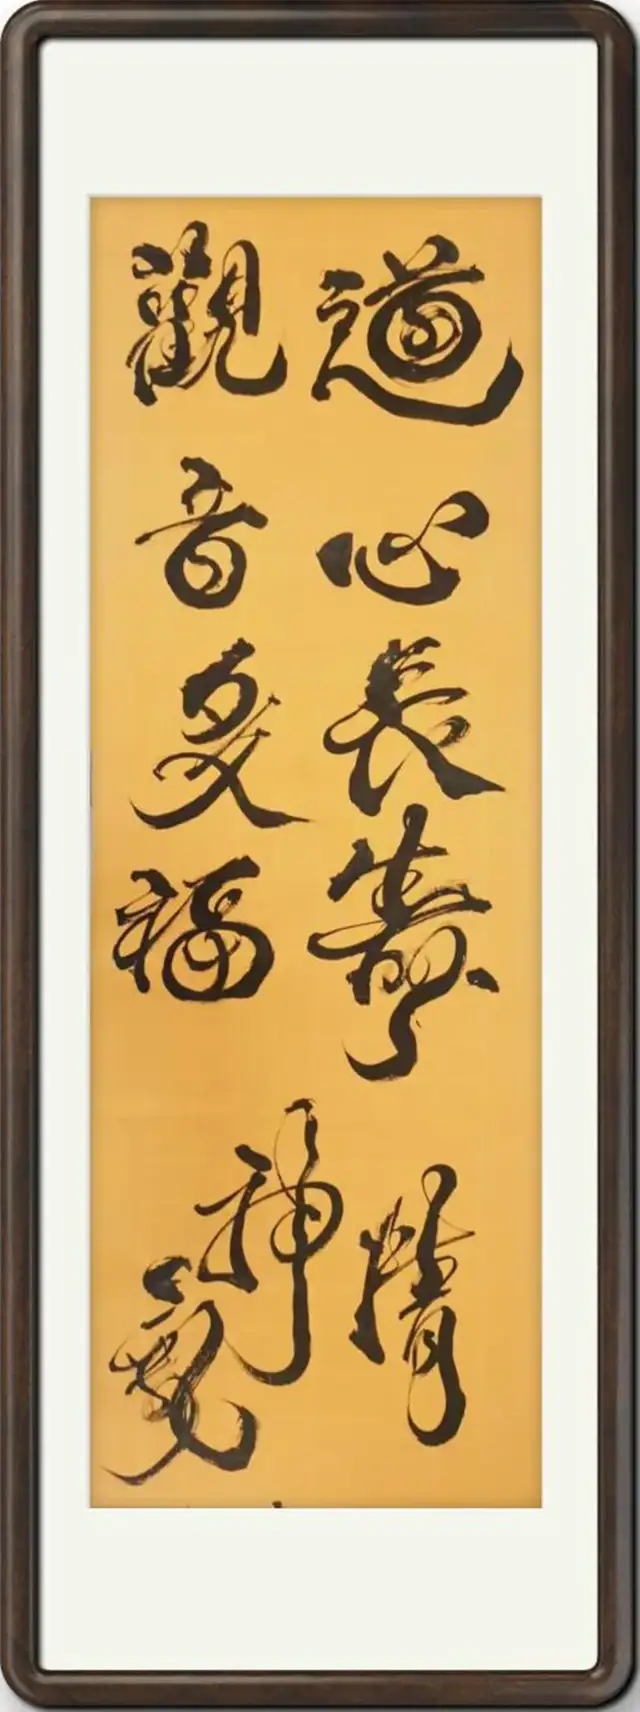 道心長壽
精
觀音福
神